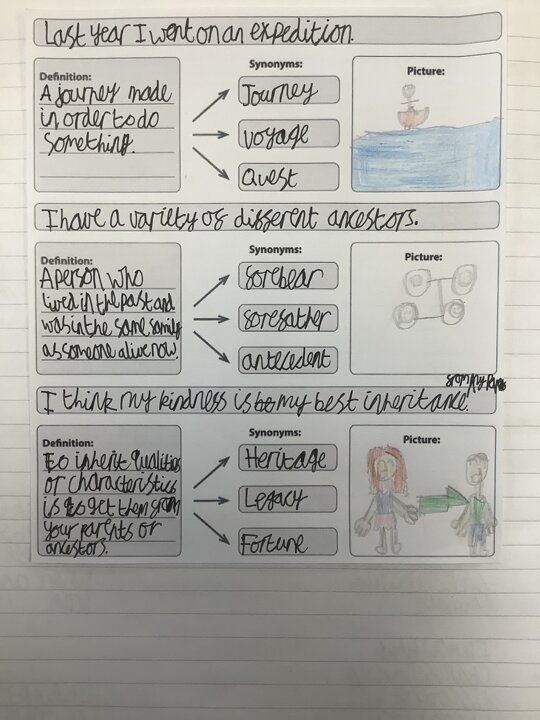 Last year I went on an expedition.
Definition:
A journey made
in order to do
something.
Synonyms:
Journey
voyage
Quest
Picture:
I have a variety of different ancestors.
Definition:
A person who
lived in the past and
was in the same family
as someone alive now.
Synonyms:
forebear
forefather
antecedent
Picture:
from my
I think my kindness is my best inheritance.
Definition:
To inherit qualities
or characteristics
is to get them from
your parents or
ancestors.
Synonyms:
Heritage
Legacy
Fortune
Picture: